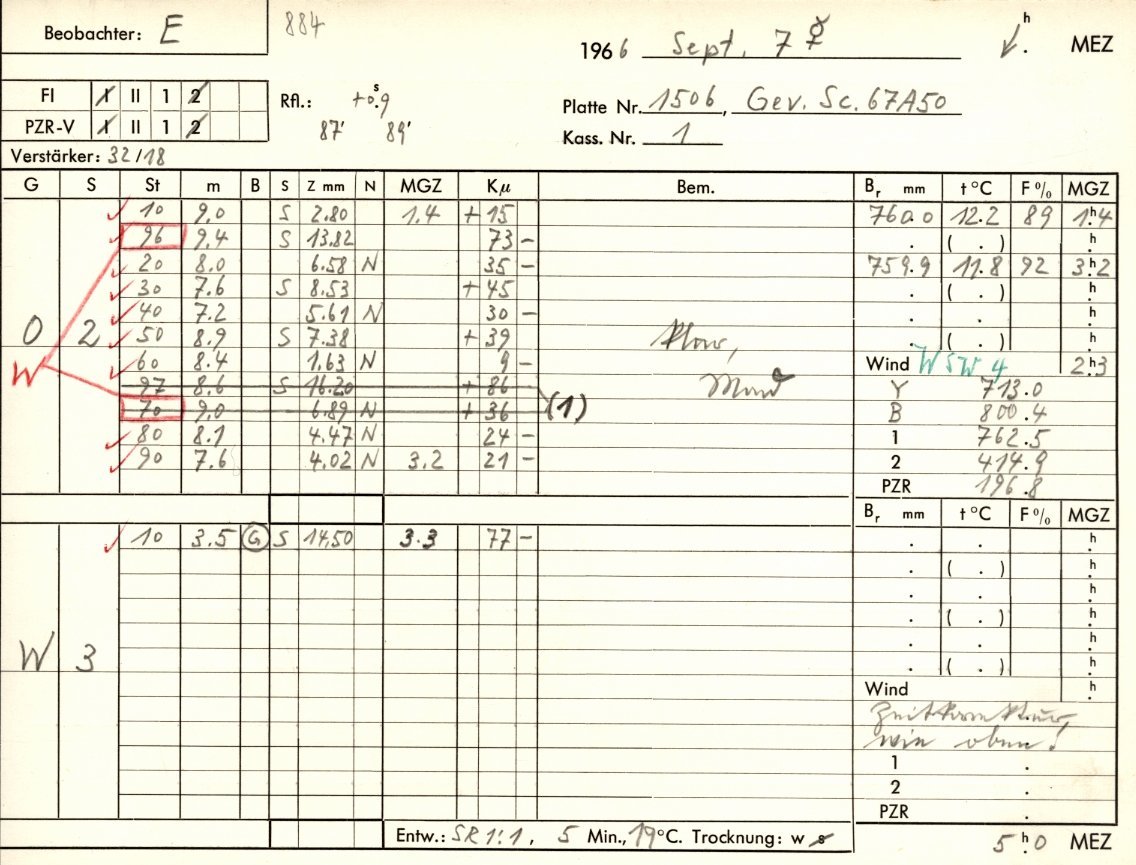 Beobachter: E
884
1966 Sept. 7 ☿
h . MEZ
FI I II 1 2
PZR-V I II 1 2
Rfl.: +0.ˢ9
87' 89'
Platte Nr. 1506, Gev. Sc. 67A50
Kass. Nr. 1
Verstärker: 32/18
G S St m B S Z mm N MGZ Kμ Bem. Br mm t °C F % MGZ
10 9,0 S 2.80 1,4 + 15 760.0 12.2 89 1ʰ4
96 9,4 S 13.82 73 - . ( . ) h.
20 8.0 6.58 N 35 - 759.9 11.8 92 3ʰ2
30 7.6 S 8.53 + 45 . ( . ) h.
40 7.2 5.61 N 30 - . h.
O 2 50 8.9 S 7.38 + 39 Klar, . ( . ) h.
W 60 8.4 1.63 N 9 - Wind WSW 4 2ʰ3
97 8.6 S 16.20 + 86 Mond Y 713.0
70 9,0 6.89 N + 36 (1) B 800.4
80 8.1 4.47 N 24 - 1 762.5
90 7.6 4.02 N 3.2 21 - 2 414.9
PZR 196.8
Br mm t °C F % MGZ
10 3.5 G S 14,50 3.3 77 - . . h.
. ( . ) h.
. . h.
. ( . ) h.
. . h.
W 3 . ( . ) h.
Wind h.
Zeitkorrektur,
wie oben!
1 .
2 .
PZR .
Entw.: SR 1:1, 5 Min., 19°C. Trocknung: w s
5 ʰ. 0 MEZ